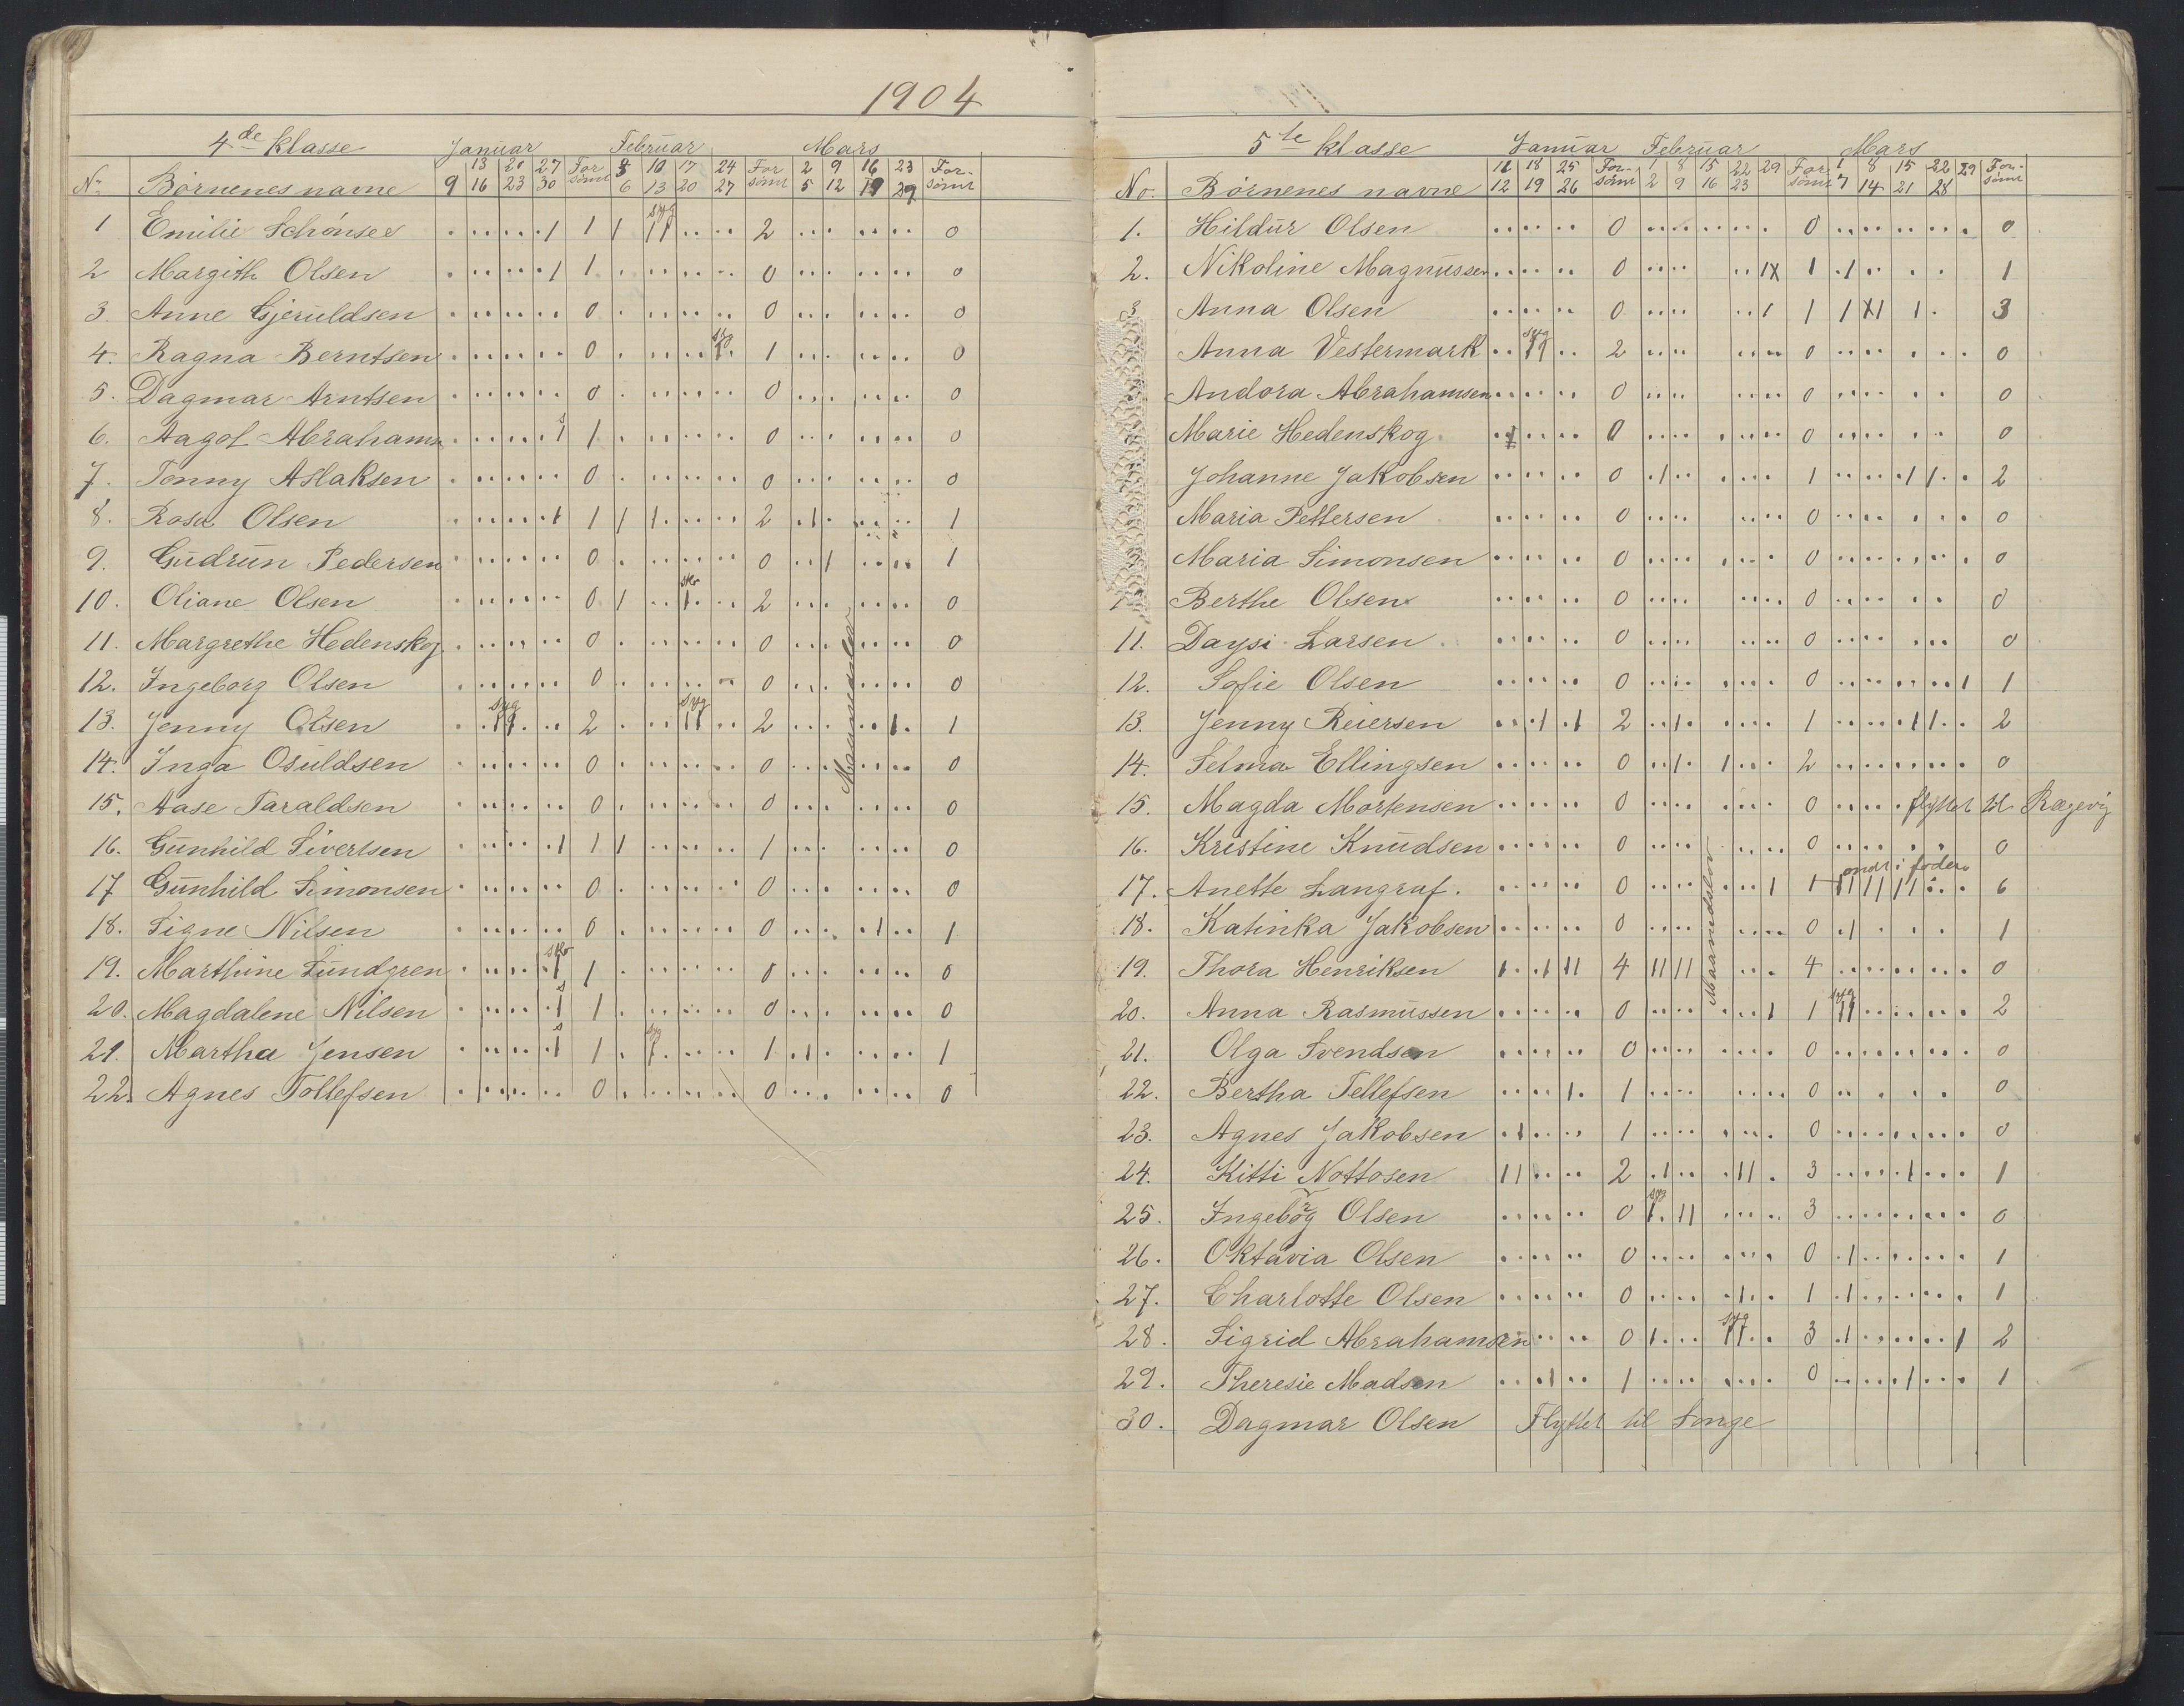 1904
4de klasse Januar Februar Mars
No Börnenes navne 9 13 16 20 23 27 30 Forsömt 3 6 10 13 17 20 24 27 Forsömt 2 5 9 12 16 19 23 29 Forsömt
1 Emilie 1 syg 2 0
2 Margith Olsen 1 0 0
3. Anne Gjeruldsen 0 0 0
4. Ragna Berntsen 0 syg 1 0
5. Dagmar Arntsen 0 0 0
6. Aagot Abrahams s 1 0 0
7. Tonny Aslaksen 0 0 0
8. Rosa Olsen 1 2 1
9. Gudrun Pedersen 0 0 1
10. Oliane Olsen 0 sko 2 0
11. Margrethe Hedenskog 0 0 0
12. Ingeborg Olsen 0 0 0
13. Jenny Olsen syg 2 syg 2 1
14. Inga Osuldsen 0 0 0
15. Aase Taraldsen 0 0 0
16. Gunhild Sivertsen 1 1 0
17 Gunhild Simonsen 0 0 0
18. Signe Nilsen 0 0 1
19. Marthine Lundgren sko 1 0 0
20. Magdalene Nilsen s 1 0 0
21. Martha Jensen s 1 syg 1 1
22. Agnes Tollefsen 0 0 0
Maanedslov
5te klasse Januar Februar Mars
No. Börnenes navne 11 12 18 19 25 26 Forsömt 1 2 8 9 15 16 22 23 29 Forsömt 1 7 8 14 15 21 22 28 29 Forsömt
1. Hildur Olsen 0 0 0
2. Nikoline Magnussen 0 1 1
3 Anna Olsen 0 1 3
Anna Vestermark syg 2 0 0
Andora Abrahamsen 0 0 0
Marie Hedenskog 0 0 0
Johanne Jakobsen 0 1 2
Maria Pettersen 0 0 0
Maria Simonsen 0 0 0
Berthe Olsen 0 0 0
11. Daysi Larsen 0 0 0
12. Sofie Olsen 0 0 1
13. Jenny Reiersen 2 1 2
14. Selma Ellingsen 0 2 0
15. Magda Mortensen 0 0 flyttet til Ragevig
16. Kristine Knudsen 0 0 0
17. Anette Langraf. 0 1 ondt i foden 6
18. Katinka Jakobsen 0 0 1
19. Thora Henriksen 4 4 0
20. Anna Rasmussen 0 1 syg 2
21. Olga Svendsen 0 0 0
22. Bertha Tellefsen 1 0 0
23. Agnes Jakobsen 1 0 0
24. Kitti Nottosen 2 3 1
25. Ingeborg Olsen 0 syg 3 0
26. Oktavia Olsen 0 0 1
27. Charlotte Olsen 0 1 1
28. Sigrid Abrahamsen 0 syg 3 2
29. Theresie Madsen 1 0 1
30. Dagmar Olsen Flyttet til Songe
Maanedslov